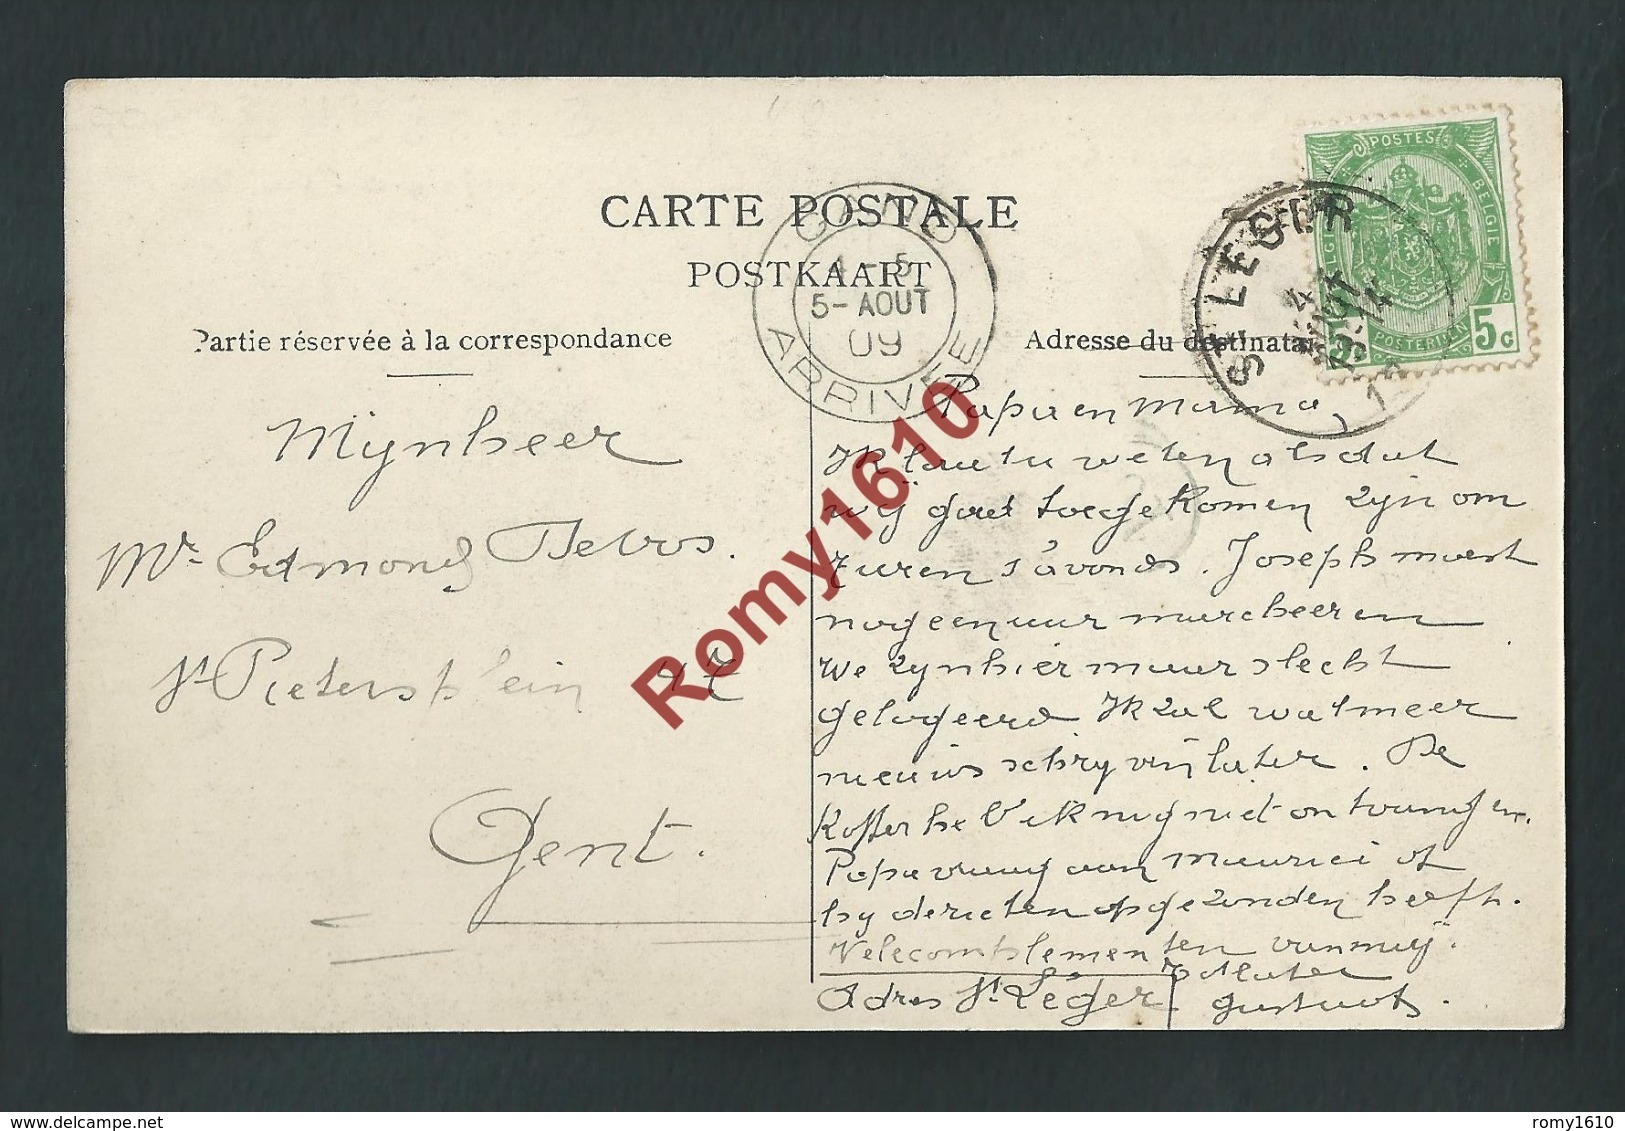 CARTE POSTALE
POSTKAART
Partie réservée à la correspondance
Adresse du destinatai
GAND
4-5
5-AOUT
09
ARRIVÉE
ST LEGER
4
14
POSTES
BELGIE
POSTERIJEN
5c
Mijnheer
Mr Edmond
St Pietersplein 47
Gent.
Papa en Mama,
Ik laat u weten als dat
wij goed toegekomen zijn om
7 uren s'avonds. Joseph moest
nog een uur marcheeren
We zijn hier maar slecht
gelogeerd Ik zal wat meer
nieuws schryven later. De
Koffer heb ik nog niet ontvangen.
Papa vraag aan Maurice of
hy de reten opgezonden heeft.
Vele complementen van mij.
Adres St. Léger
Tot later
Gustaaf.
Romy1610
romy1610